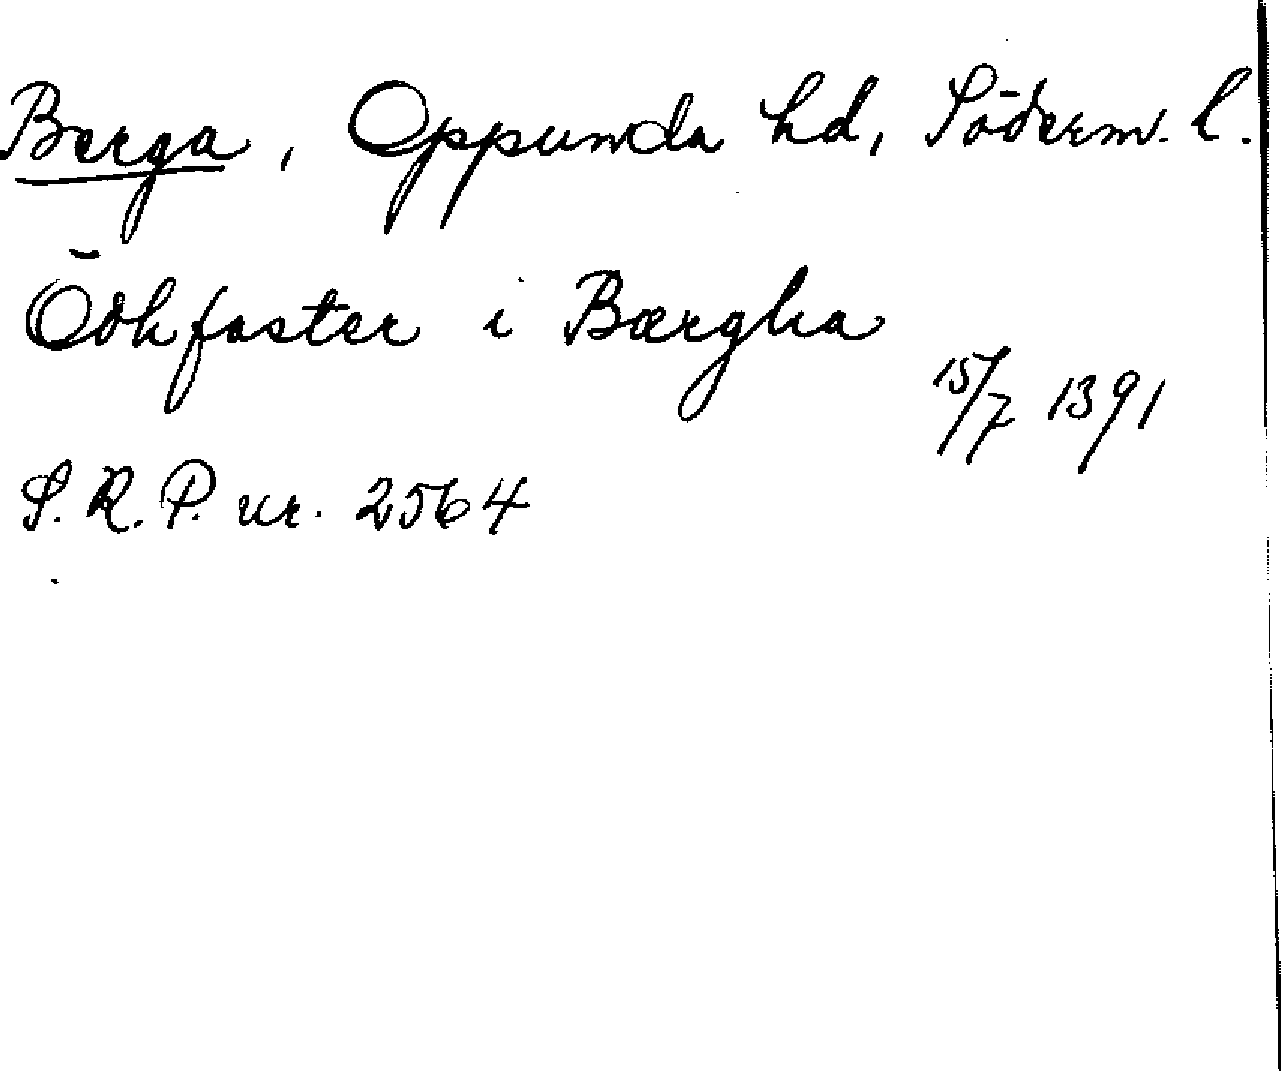 Berga, Oppunda hd, Söderm. l.
Ödhfaster i Bærgha
15/7 1391
S. R. P. nr. 2564